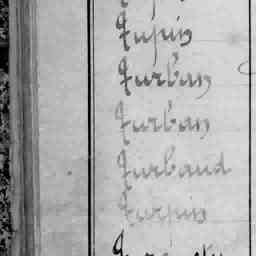 Turpin
Turban
Turban
Turbaud
Turpin